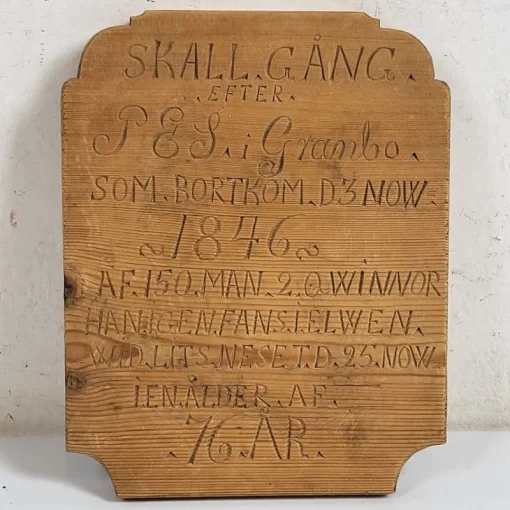 SKALL.GÅNG.
.EFTER.
P E S. i Grambo.
SOM. BORTKOM. D. 3 NOW.
~1846~
AF. 150. MAN. 2. Q.WINNOR
HAN.IGEN.FANS.I.ELWEN.
WED.LITS.NESET.D.25.NOW.
I.EN.ÅLDER.AF.
.76.ÅR.